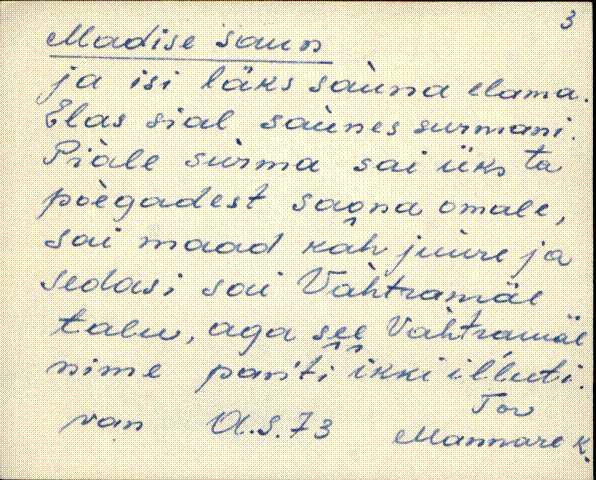 3
Madise saun
ja isi läks sàuna elama.
Elas sial saùnes surmani.
Piàle sùrma sai üks ta
pòegadest saona omale,
sai maad kah juure ja
sedasi sai Vàhtramäe
talu, aga see Vàhtramäe
nime panti ikki illuti.
Tor
van A.S.73 Mannare k.